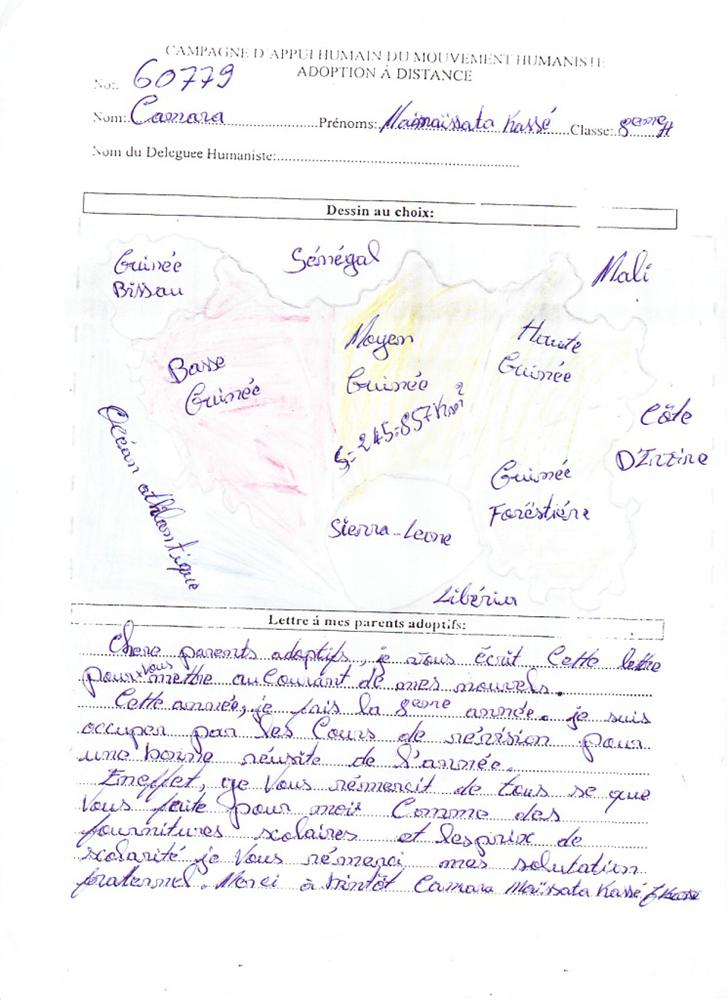 CAMPAGNE D'APPUI HUMAIN DU MOUVEMENT HUMANISTE
ADOPTION Á DISTANCE
No: 60779
Nom: Camara Prénoms: Maïmaïssata Kassé Classe: 8eme
Nom du Deleguee Humaniste:
Dessin au choix:
Guinée Bissau
Sénégal
Mali
Basse Guinée
Moyen Guinée
Haute Guinée
S= 245.857Km²
Côte
Océan athlantique
Guinée Foréstiére
Sierra-Leone
Libéria
Lettre á mes parents adoptifs:
Chere parents adoptifs, je vous écrit Cette lettre
pour vous metthe au Courant de mes nouvels.
Cette année, je fais la 8eme année. je suis
occuper par les Cours de révision pour
une bonne réusite de l'année.
Eneffet, je Vous rémercit de tous se que
Vous faite pour moit Comme des
fournitures scolaires et lesprix de
scolarité je Vous rémerci mes salutation
fraternel. Merci à bintôt Camara Maïssata Kassé